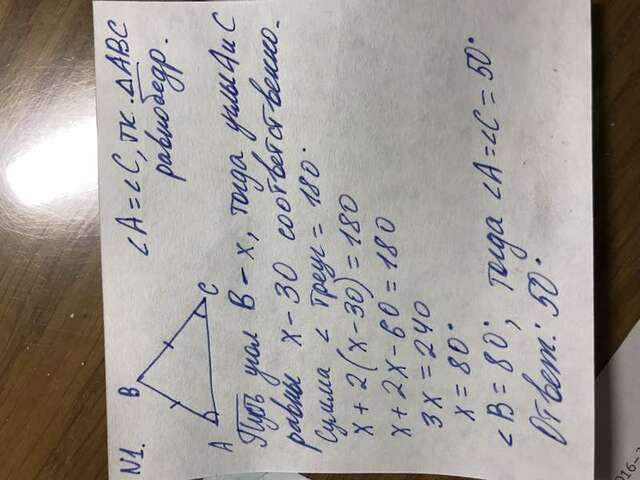 N1.
B
A
C
∠A = ∠C, т.к. △ABC
равнобедр.
Пусть угол B - x, тогда углы A и C
равны x - 30 соответственно.
Сумма ∠ треуг = 180°
x + 2(x - 30) = 180
x + 2x - 60 = 180
3x = 240
x = 80°
∠B = 80°, тогда ∠A = ∠C = 50°
Ответ: 50°